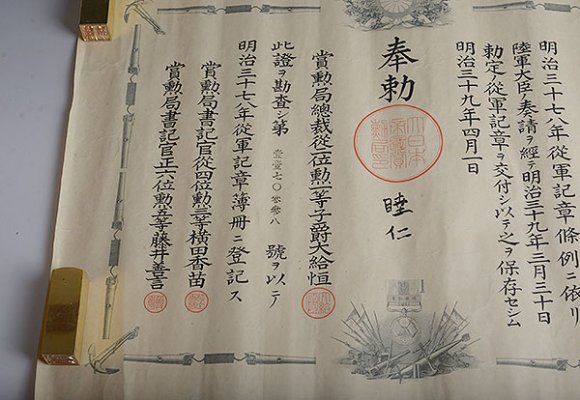 明治三十七八年從軍記章條例ニ依リ
陸軍大臣ノ奏請ヲ經テ明治三十九年三月三十日
勅定ノ從軍記章ヲ交付シ以テ之ヲ保存セシム
明治三十九年四月一日
奉勅
睦仁
賞勲局總裁從二位勲一等子爵大給恒
此證ヲ勘査シ第 壹壹七〇參參八 號ヲ以テ
明治三十七八年從軍記章簿冊ニ登記ス
賞勲局書記官從四位勲三等横田香苗
賞勲局書記官正六位勲五等藤井善言